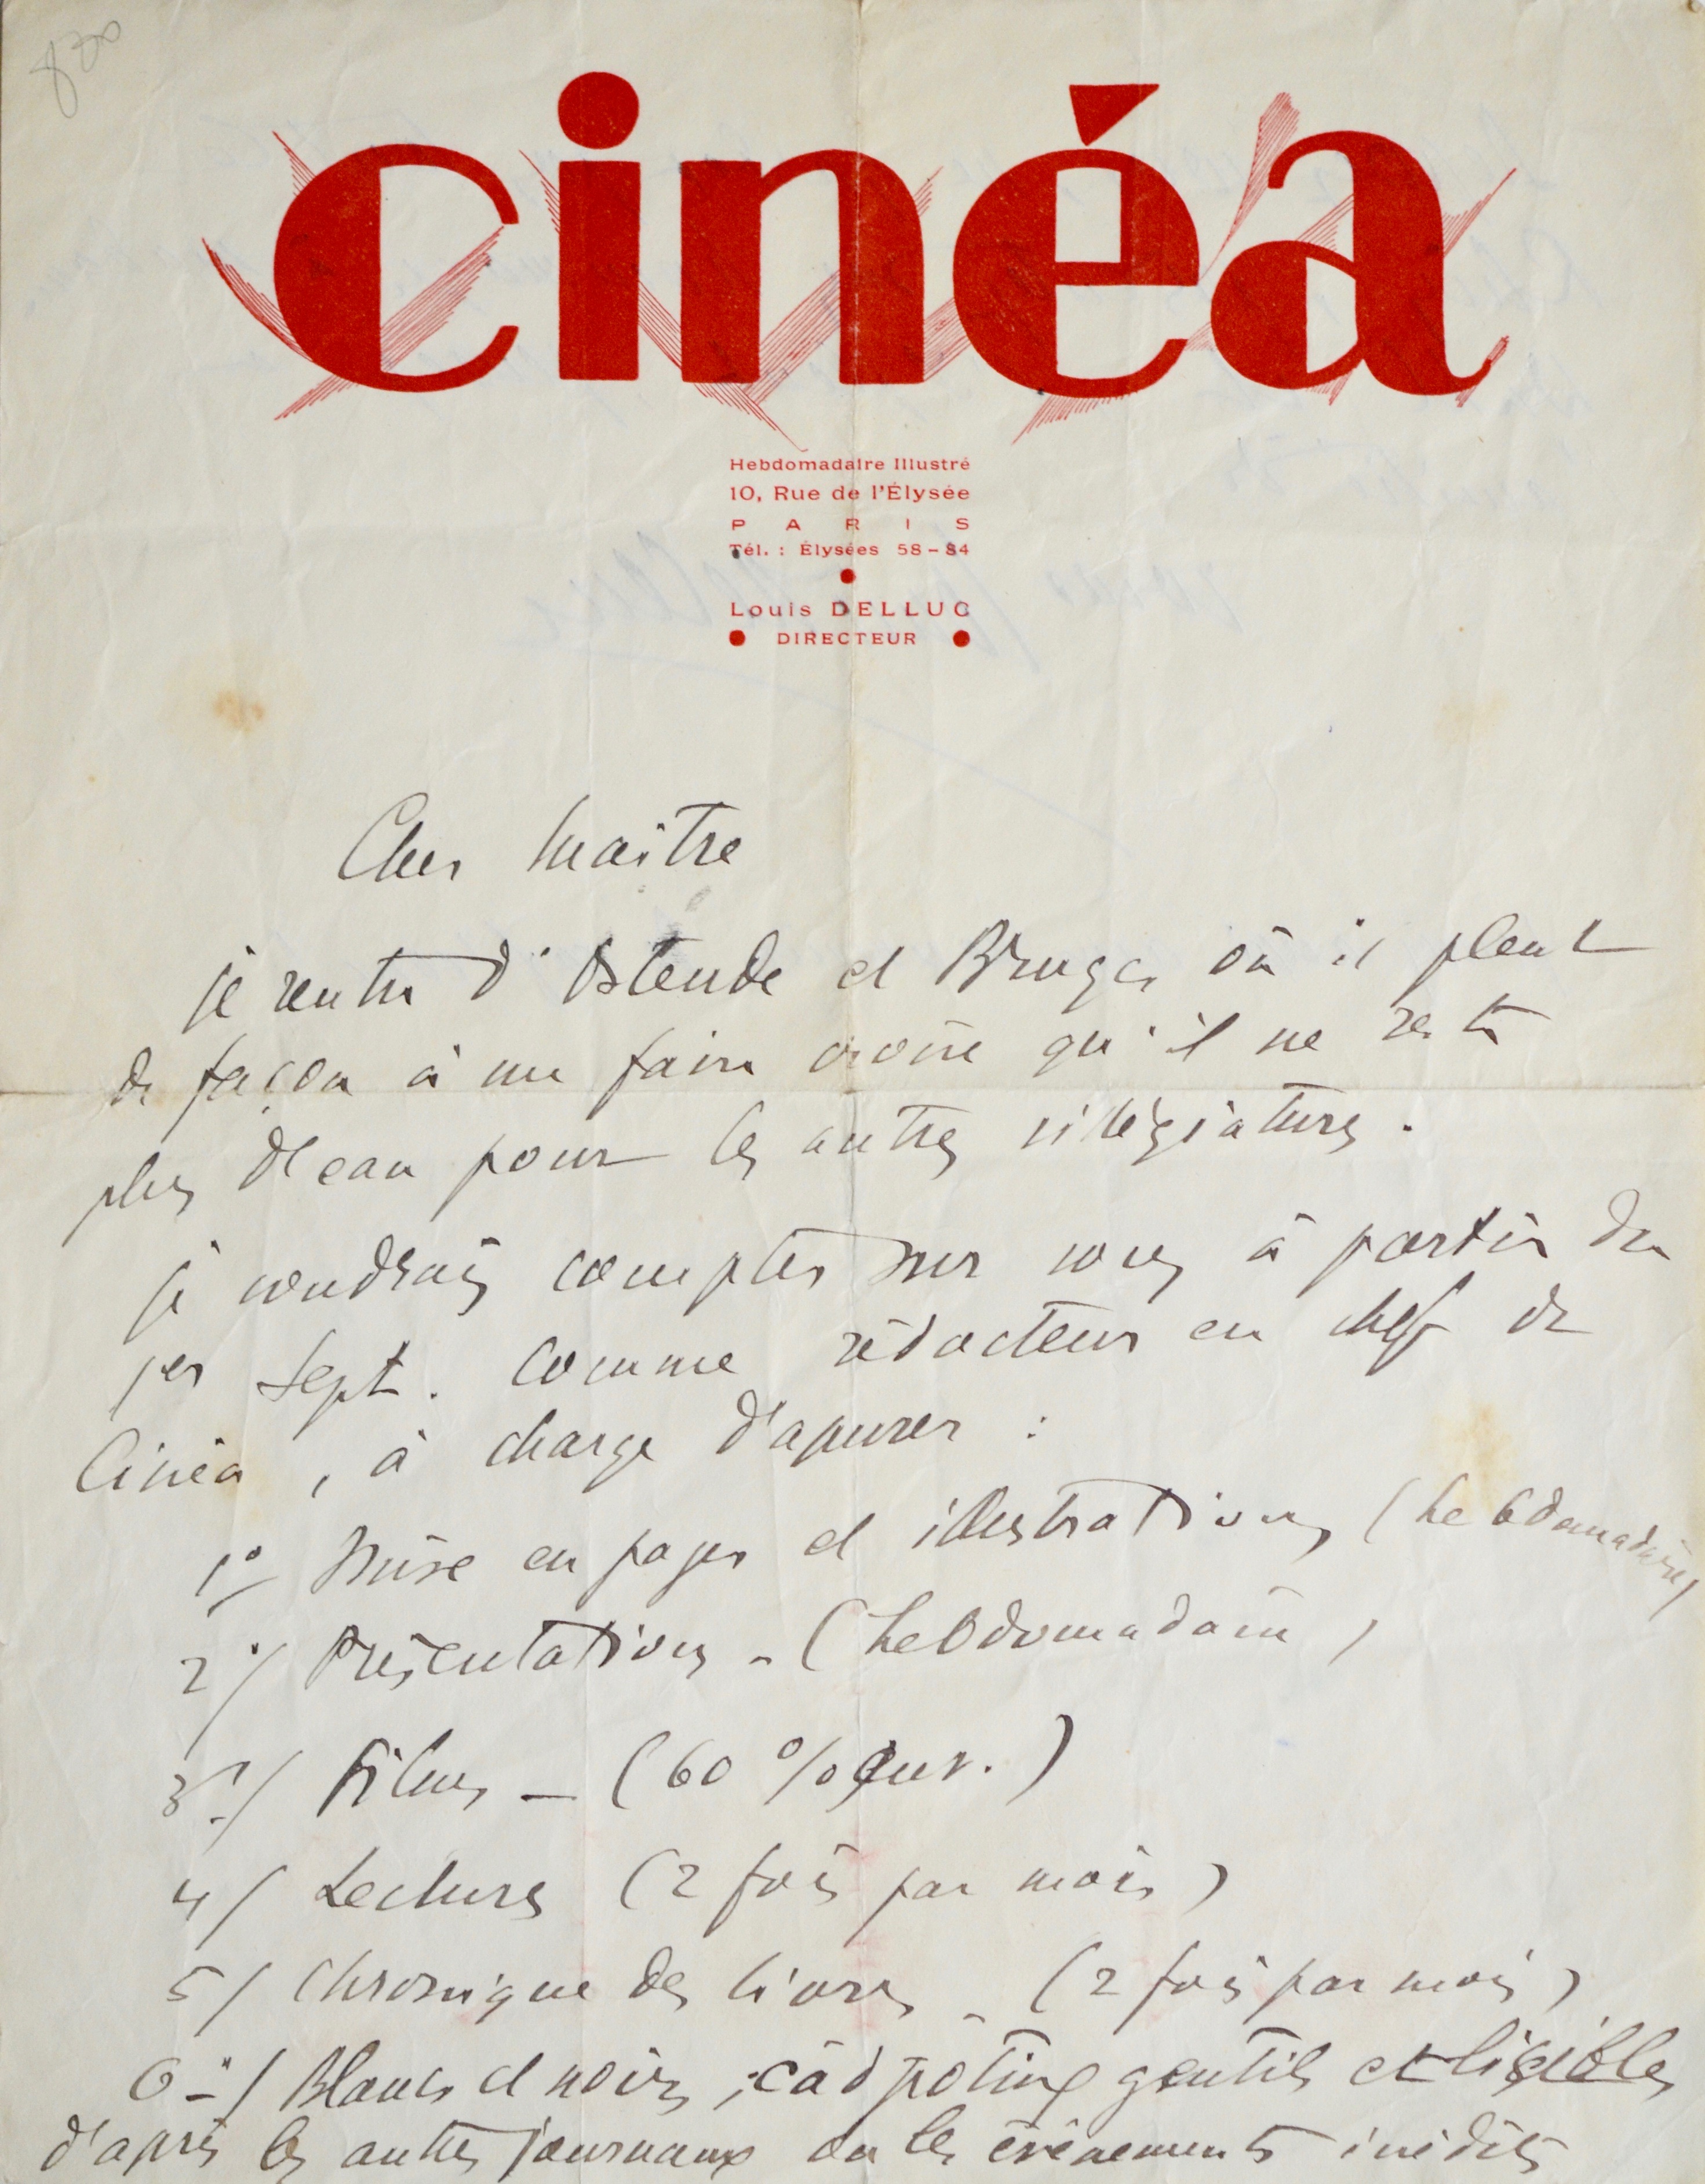 800
cinéa
Hebdomadaire Illustré
10, Rue de l'Élysée
PARIS
Tél. : Élysées 58-84
Louis DELLUC
DIRECTEUR
Cher Maître
je rentre d'Ostende et Bruges où il pleut
de façon à me faire croire qu'il ne reste
plus d'eau pour les autres villégiatures.
je voudrais compter sur vous à partir du
1er Sept. comme rédacteur en chef de
Cinéa, à charge d'apurer :
1o Mise en pages et illustrations (hebdomadaire)
2o/ Présentations - (hebdomadaire)
3o/ Films - (60 % env.)
4/ Lectures (2 fois par mois)
5/ Chronique des livres - (2 fois par mois)
6o/ Blancs et noirs, càd potins gentils et lisibles
d'après les autres journaux ou les évènements inédits